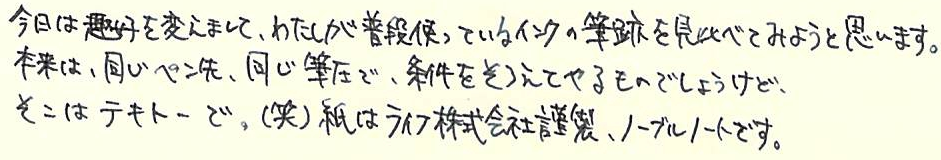 今日は趣好を変えまして、わたしが普段使っているインクの筆跡を見比べてみようと思います。
本来は、同じペン先、同じ筆圧で、条件をそろえてやるものでしょうけど、
そこはテキトーで。(笑)紙はライフ株式会社謹製、ノーブルノートです。